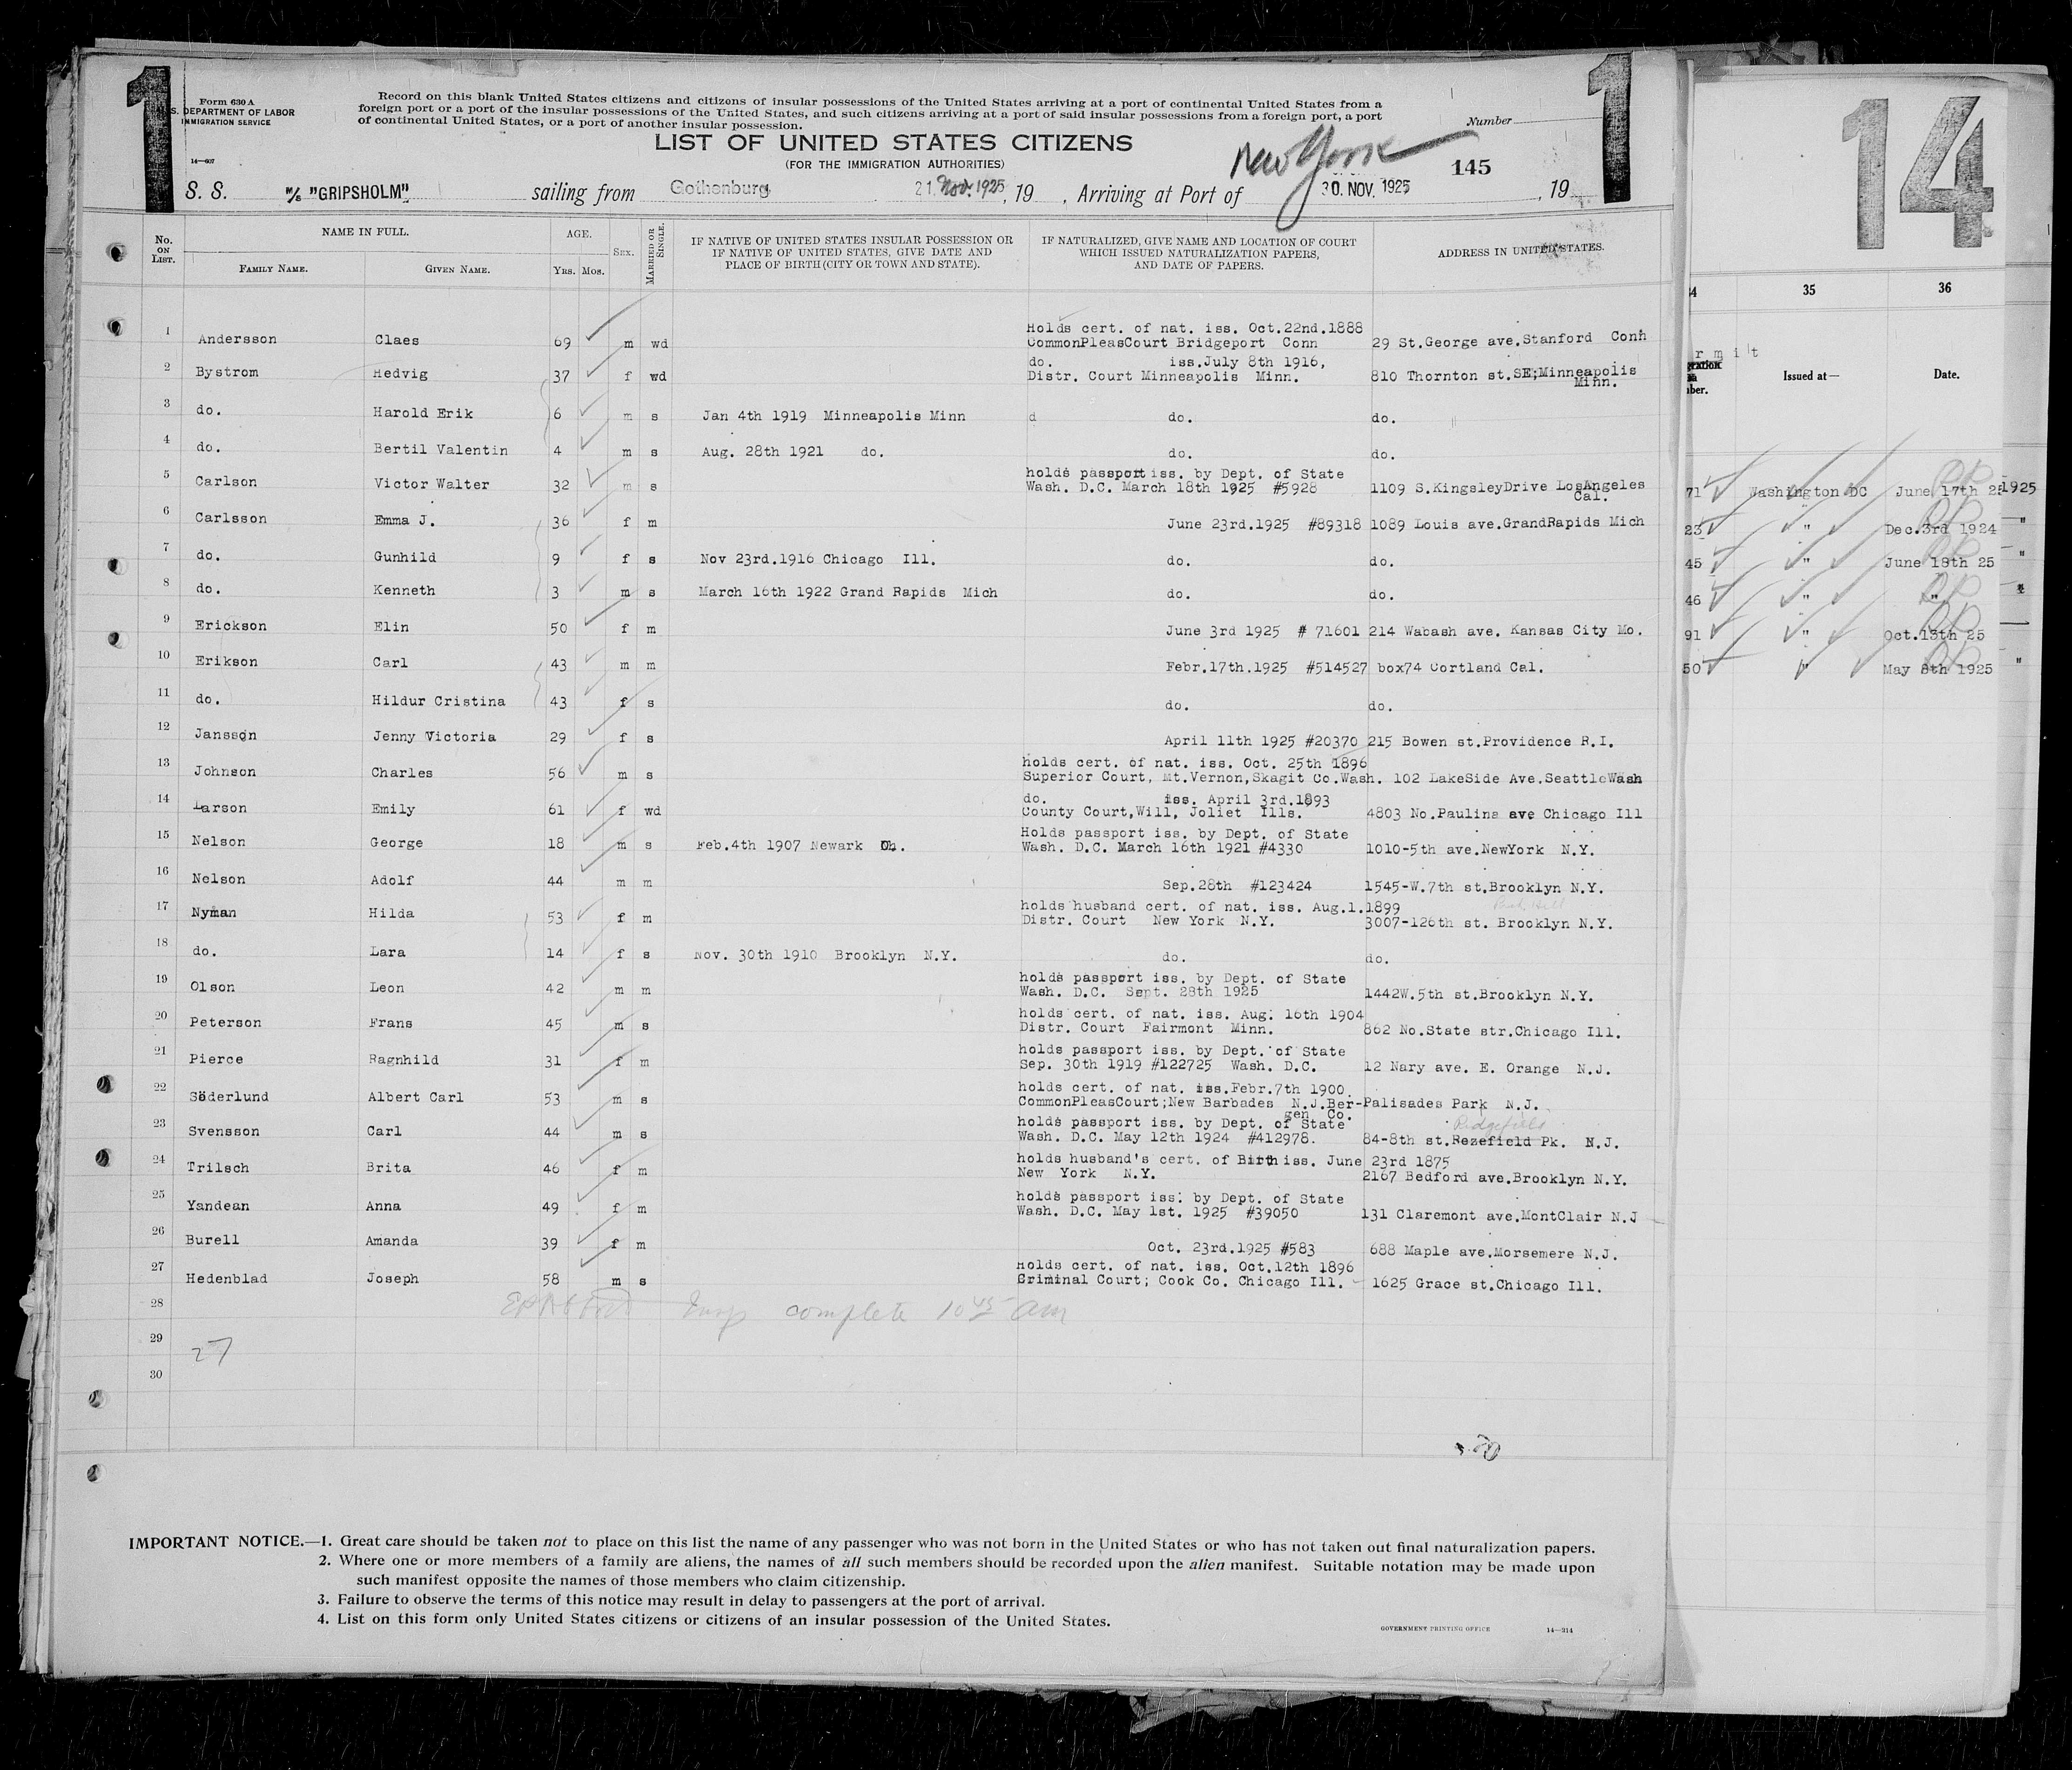 1
1
14
Form 630 A
U.S. DEPARTMENT OF LABOR
IMMIGRATION SERVICE
14—607
Record on this blank United States citizens and citizens of insular possessions of the United States arriving at a port of continental United States from a
foreign port or a port of the insular possessions of the United States, and such citizens arriving at a port of said insular possessions from a foreign port, a port
of continental United States, or a port of another insular possession.
Number
LIST OF UNITED STATES CITIZENS
(FOR THE IMMIGRATION AUTHORITIES)
145
S. S. M/S "GRIPSHOLM" sailing from Gothenburg 21. Nov. 1925, 19 , Arriving at Port of New York 30. NOV. 1925, 19
No. ON LIST. NAME IN FULL. AGE. SEX. MARRIED OR SINGLE. IF NATIVE OF UNITED STATES INSULAR POSSESSION OR IF NATIVE OF UNITED STATES, GIVE DATE AND PLACE OF BIRTH (CITY OR TOWN AND STATE). IF NATURALIZED, GIVE NAME AND LOCATION OF COURT WHICH ISSUED NATURALIZATION PAPERS, AND DATE OF PAPERS. ADDRESS IN UNITED STATES.
FAMILY NAME. GIVEN NAME. YRS. MOS.
Holds cert. of nat. iss. Oct.22nd.1888
1 Andersson Claes 69 m wd CommonPleasCourt Bridgeport Conn 29 St.George ave.Stanford Conn
do. iss.July 8th 1916,
2 Bystrom Hedvig 37 f wd Distr. Court Minneapolis Minn. 810 Thornton st.SE;Minneapolis
Minn.
3 do. Harold Erik 6 m s Jan 4th 1919 Minneapolis Minn d do. do.
4 do. Bertil Valentin 4 m s Aug. 28th 1921 do. do. do.
holds passport iss. by Dept. of State
5 Carlson Victor Walter 32 m s Wash. D.C. March 18th 1925 #5928 1109 S.KingsleyDrive LosAngeles
Cal.
6 Carlsson Emma J. 36 f m June 23rd.1925 #89318 1089 Louis ave.GrandRapids Mich
7 do. Gunhild 9 f s Nov 23rd.1916 Chicago Ill. do. do.
8 do. Kenneth 3 m s March 16th 1922 Grand Rapids Mich do. do.
9 Erickson Elin 50 f m June 3rd 1925 # 71601 214 Wabash ave. Kansas City Mo.
10 Erikson Carl 43 m m Febr.17th.1925 #514527 box74 Cortland Cal.
11 do. Hildur Cristina 43 f s do. do.
12 Jansson Jenny Victoria 29 f s April 11th 1925 #20370 215 Bowen st.Providence R.I.
holds cert. of nat. iss. Oct. 25th 1896
13 Johnson Charles 56 m s Superior Court, Mt.Vernon,Skagit Co.Wash. 102 LakeSide Ave.SeattleWash
do. iss. April 3rd.1893
14 Larson Emily 61 f wd County Court,Will, Joliet Ills. 4803 No.Paulina ave Chicago Ill
Holds passport iss. by Dept. of State
15 Nelson George 18 m s Feb.4th 1907 Newark Wash. D.C. March 16th 1921 #4330 1010-5th ave.NewYork N.Y.
16 Nelson Adolf 44 m m Sep.28th #123424 1545-W.7th st.Brooklyn N.Y.
holds husband cert. of nat. iss. Aug.1.1899
17 Nyman Hilda 53 f m Distr. Court New York N.Y. 3007-126th st. Brooklyn N.Y.
18 do. Lara 14 f s Nov. 30th 1910 Brooklyn N.Y. do. do.
holds passport iss. by Dept. of State
19 Olson Leon 42 m m Wash. D.C. Sept. 28th 1925 1442W.5th st.Brooklyn N.Y.
holds cert. of nat. iss. Aug. 16th 1904
20 Peterson Frans 45 m s Distr. Court Fairmont Minn. 862 No.State str.Chicago Ill.
holds passport iss. by Dept. of State
21 Pierce Ragnhild 31 f m Sep. 30th 1919 #122725 Wash. D.C. 12 Nary ave. E. Orange N.J.
holds cert. of nat. iss.Febr.7th 1900.
22 Söderlund Albert Carl 53 m s CommonPleasCourt;New Barbades N.J.Ber-Palisades Park N.J.
gen Co.
holds passport iss. by Dept. of State Ridgefield
23 Svensson Carl 44 m s Wash. D.C. May 12th 1924 #412978. 84-8th st.Rezefield Pk. N.J.
holds husband's cert. of Birth iss. June 23rd 1875
24 Trilsch Brita 46 f m New York N.Y. 2167 Bedford ave.Brooklyn N.Y.
holds passport iss. by Dept. of State
25 Yandean Anna 49 f m Wash. D.C. May 1st. 1925 #39050 131 Claremont ave.MontClair N.J
26 Burell Amanda 39 f m Oct. 23rd.1925 #583 688 Maple ave.Morsemere N.J.
holds cert. of nat. iss. Oct.12th 1896
27 Hedenblad Joseph 58 m s Criminal Court; Cook Co. Chicago Ill. - 1625 Grace st.Chicago Ill.
28 Insp complete 10 45 am
29
27
30
IMPORTANT NOTICE.—1. Great care should be taken not to place on this list the name of any passenger who was not born in the United States or who has not taken out final naturalization papers.
2. Where one or more members of a family are aliens, the names of all such members should be recorded upon the alien manifest. Suitable notation may be made upon
such manifest opposite the names of those members who claim citizenship.
3. Failure to observe the terms of this notice may result in delay to passengers at the port of arrival.
4. List on this form only United States citizens or citizens of an insular possession of the United States.
GOVERNMENT PRINTING OFFICE 14—314
34 35 36
rmit
Issued at— Date.
ber.
71 Washington DC June 17th 25 1925
23 " Dec.3rd 1924 "
45 " June 18th 25 "
46 " "
91 " Oct.15th 25
50 " May 8th 1925 "